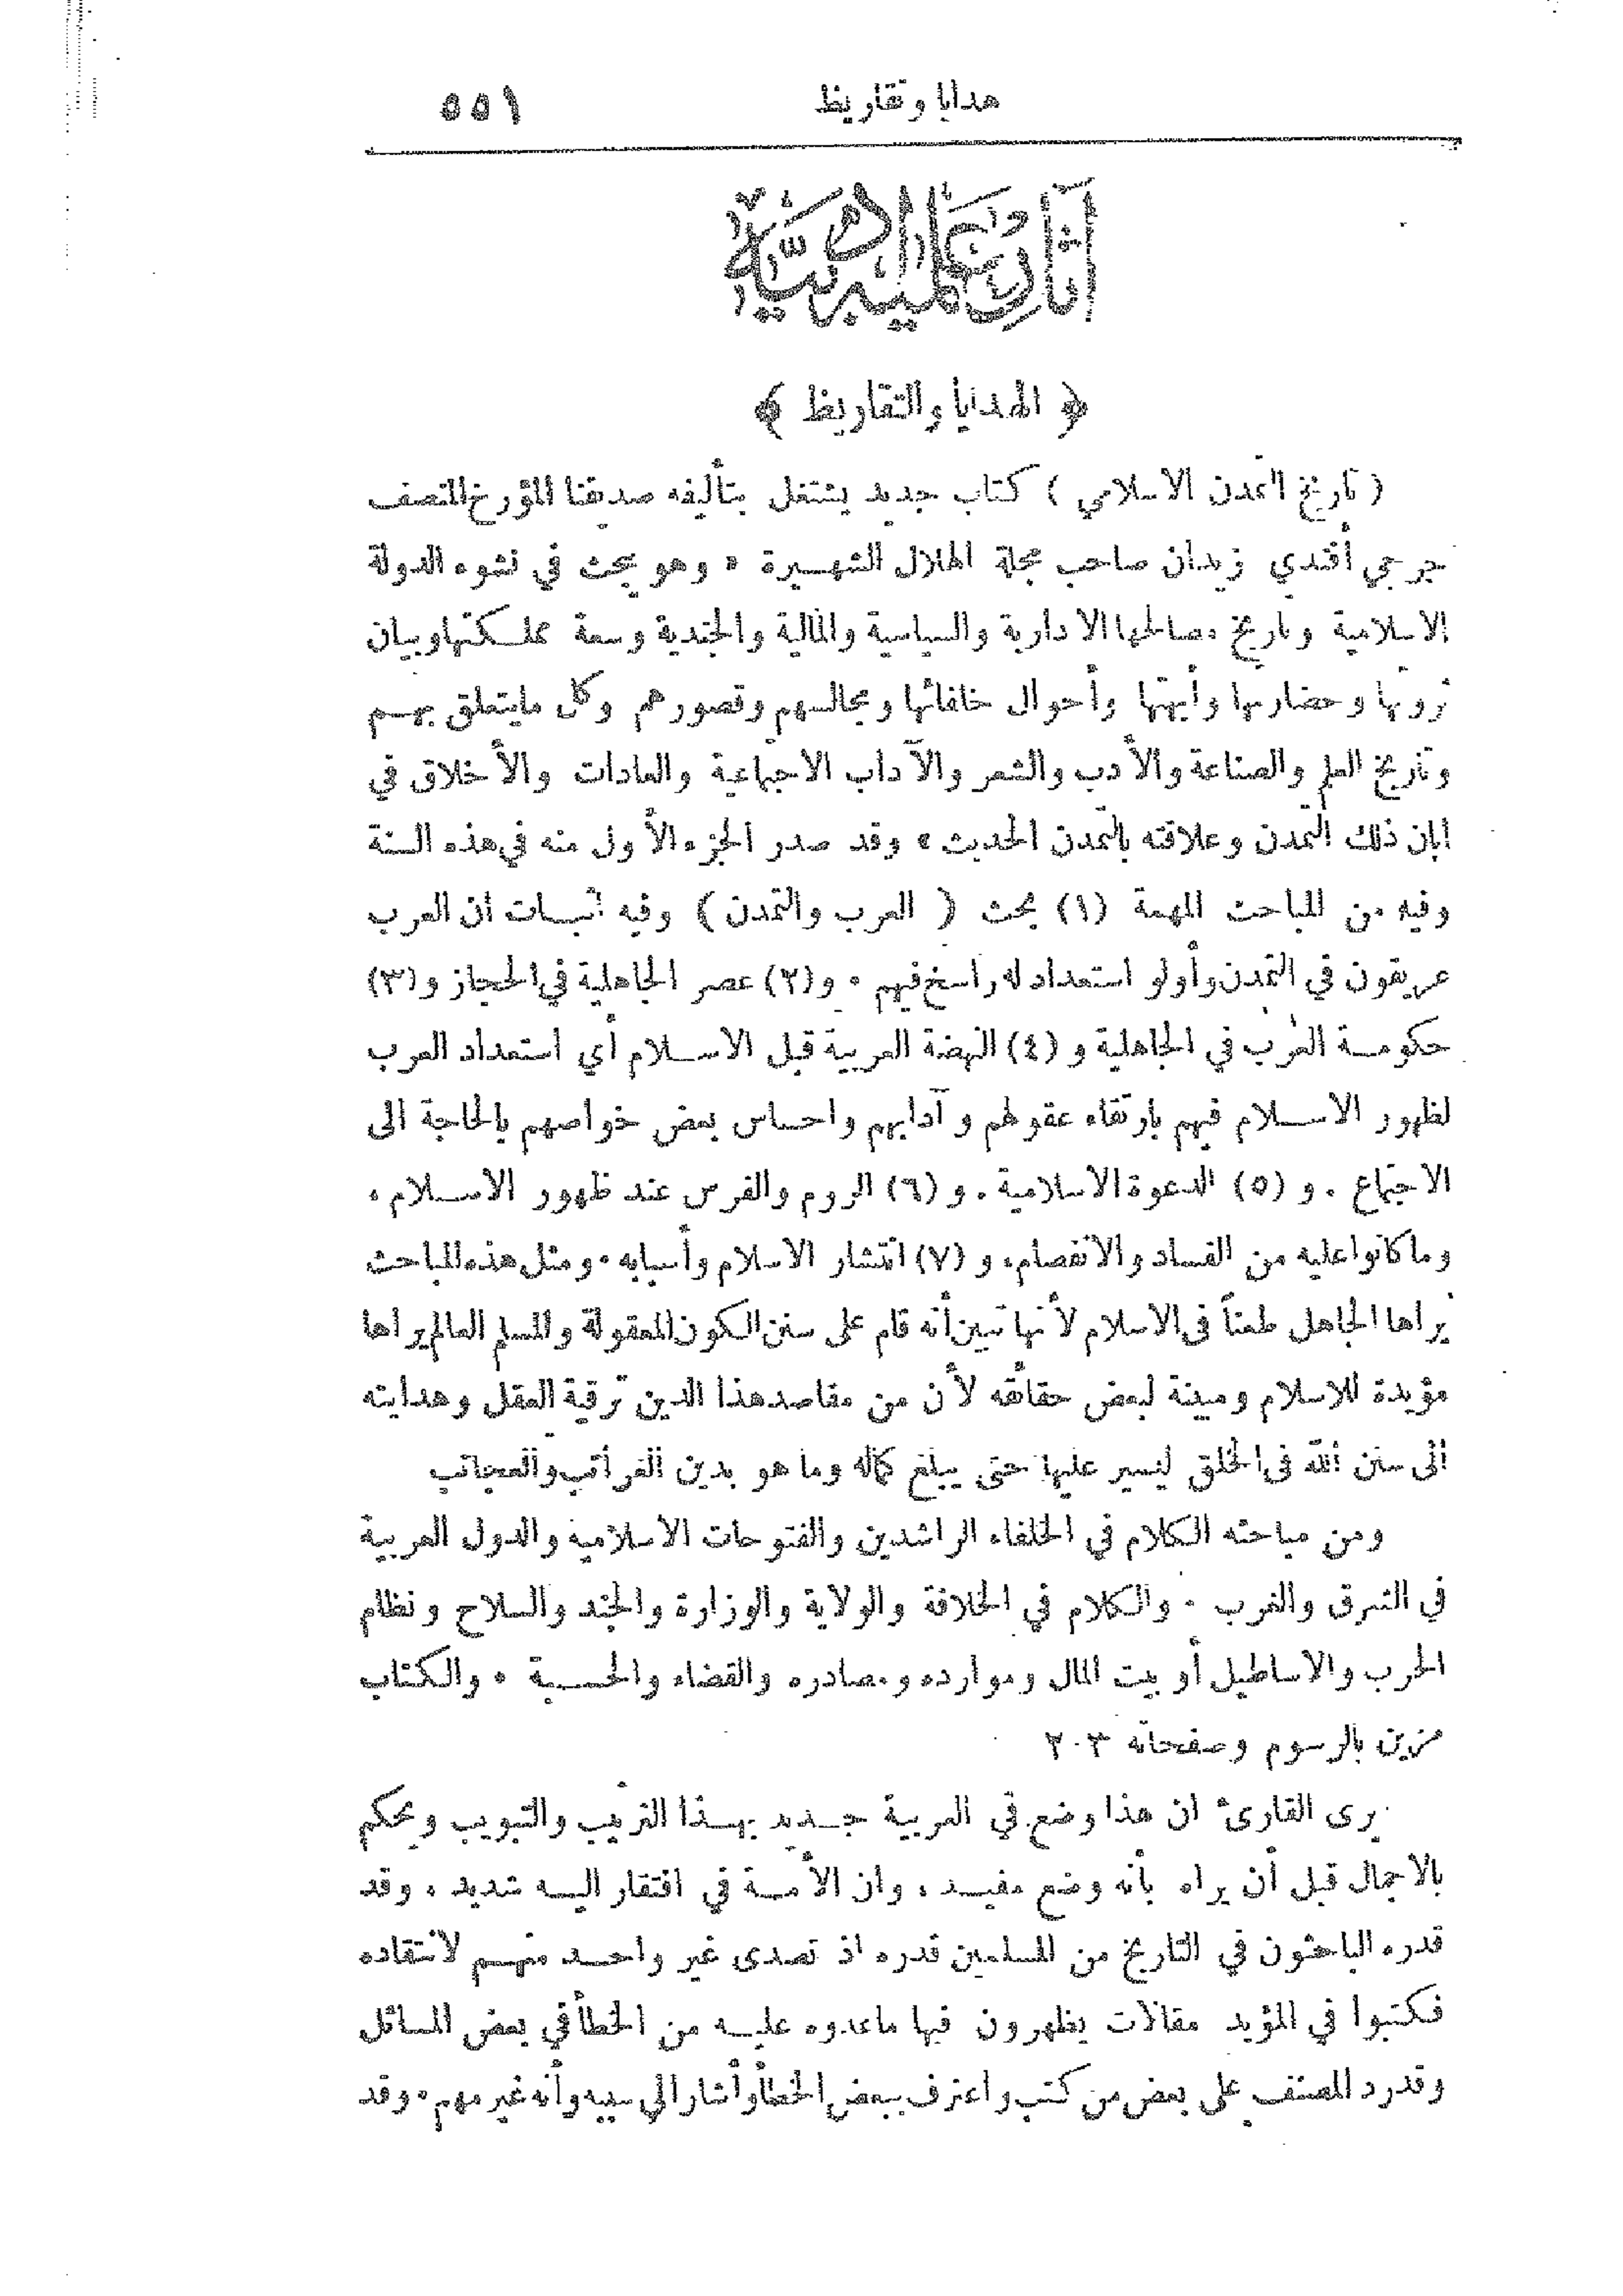 هدايا وتقاريظ ٥٥١
آثار علمية أدبية
﴿ الهدايا والتقاريظ ﴾
( تاريخ التمدن الاسلامي ) كتاب جديد يشتغل بتأليفه صديقنا المؤرخ المنصف
جرجي أفندي زيدان صاحب مجلة الهلال الشهيرة . وهو يبحث في نشوء الدولة
الاسلامية وتاريخ مصالحها الادارية والسياسية والمالية والجندية وسعة مملكتها وبيان
ثروتها وحضارتها وأبهتها وأحوال خلفائها ومجالسهم وقصورهم وكل مايتعلق بهم
وتاريخ العلم والصناعة والأدب والشعر والآداب الاجتماعية والعادات والأخلاق في
ابان ذلك التمدن وعلاقته بالتمدن الحديث . وقد صدر الجزء الأول منه في هذه السنة
وفيه من المباحث المهمة (١) بحث ( العرب والتمدن ) وفيه اثبات أن العرب
عريقون في التمدن وأولو استعداد له راسخ فيهم . و(٢) عصر الجاهلية في الحجاز و(٣)
حكومة العرب في الجاهلية و (٤) النهضة العربية قبل الاسلام أي استعداد العرب
لظهور الاسلام فيهم بارتقاء عقولهم وآدابهم واحساس بعض خواصهم بالحاجة الى
الاجتماع . و (٥) الدعوة الاسلامية . و (٦) الروم والفرس عند ظهور الاسلام ،
وما كانوا عليه من الفساد والانفصام، و (٧) انتشار الاسلام وأسبابه . ومثل هذه المباحث
يراها الجاهل طعناً في الاسلام لأنها تبين أنه قام على سنن الكون المعقولة والمسلم العالم يراها
مؤيدة للاسلام ومبينة لبعض حقائقه لأن من مقاصد هذا الدين ترقية العقل وهدايته
الى سنن الله في الخلق ليسير عليها حتى يبلغ كماله وما هو بدين الغرائب والعجائب
ومن مباحثه الكلام في الخلفاء الراشدين والفتوحات الاسلامية والدول العربية
في الشرق والغرب . والكلام في الخلافة والولاية والوزارة والجند والسلاح ونظام
الحرب والاساطيل أو بيت المال وموارده ومصادره والقضاء والحسبة . والكتاب
مزين بالرسوم وصفحاته ٢٠٣
يرى القارئ ان هذا وضع في العربية جديد بهذا الترتيب والتبويب ويحكم
بالاجمال قبل أن يراه بأنه وضع مفيد ، وان الأمة في افتقار اليه شديد ، وقد
قدره الباحثون في التاريخ من المسلمين قدره اذ تصدى غير واحد منهم لانتقاده
فكتبوا في المؤيد مقالات يظهرون فيها ماعدوه عليه من الخطأ في بعض المسائل
وقد رد المصنف على بعض من كتب واعترف ببعض الخطأ وأشار الى سببه وأنه غير مهم . وقد